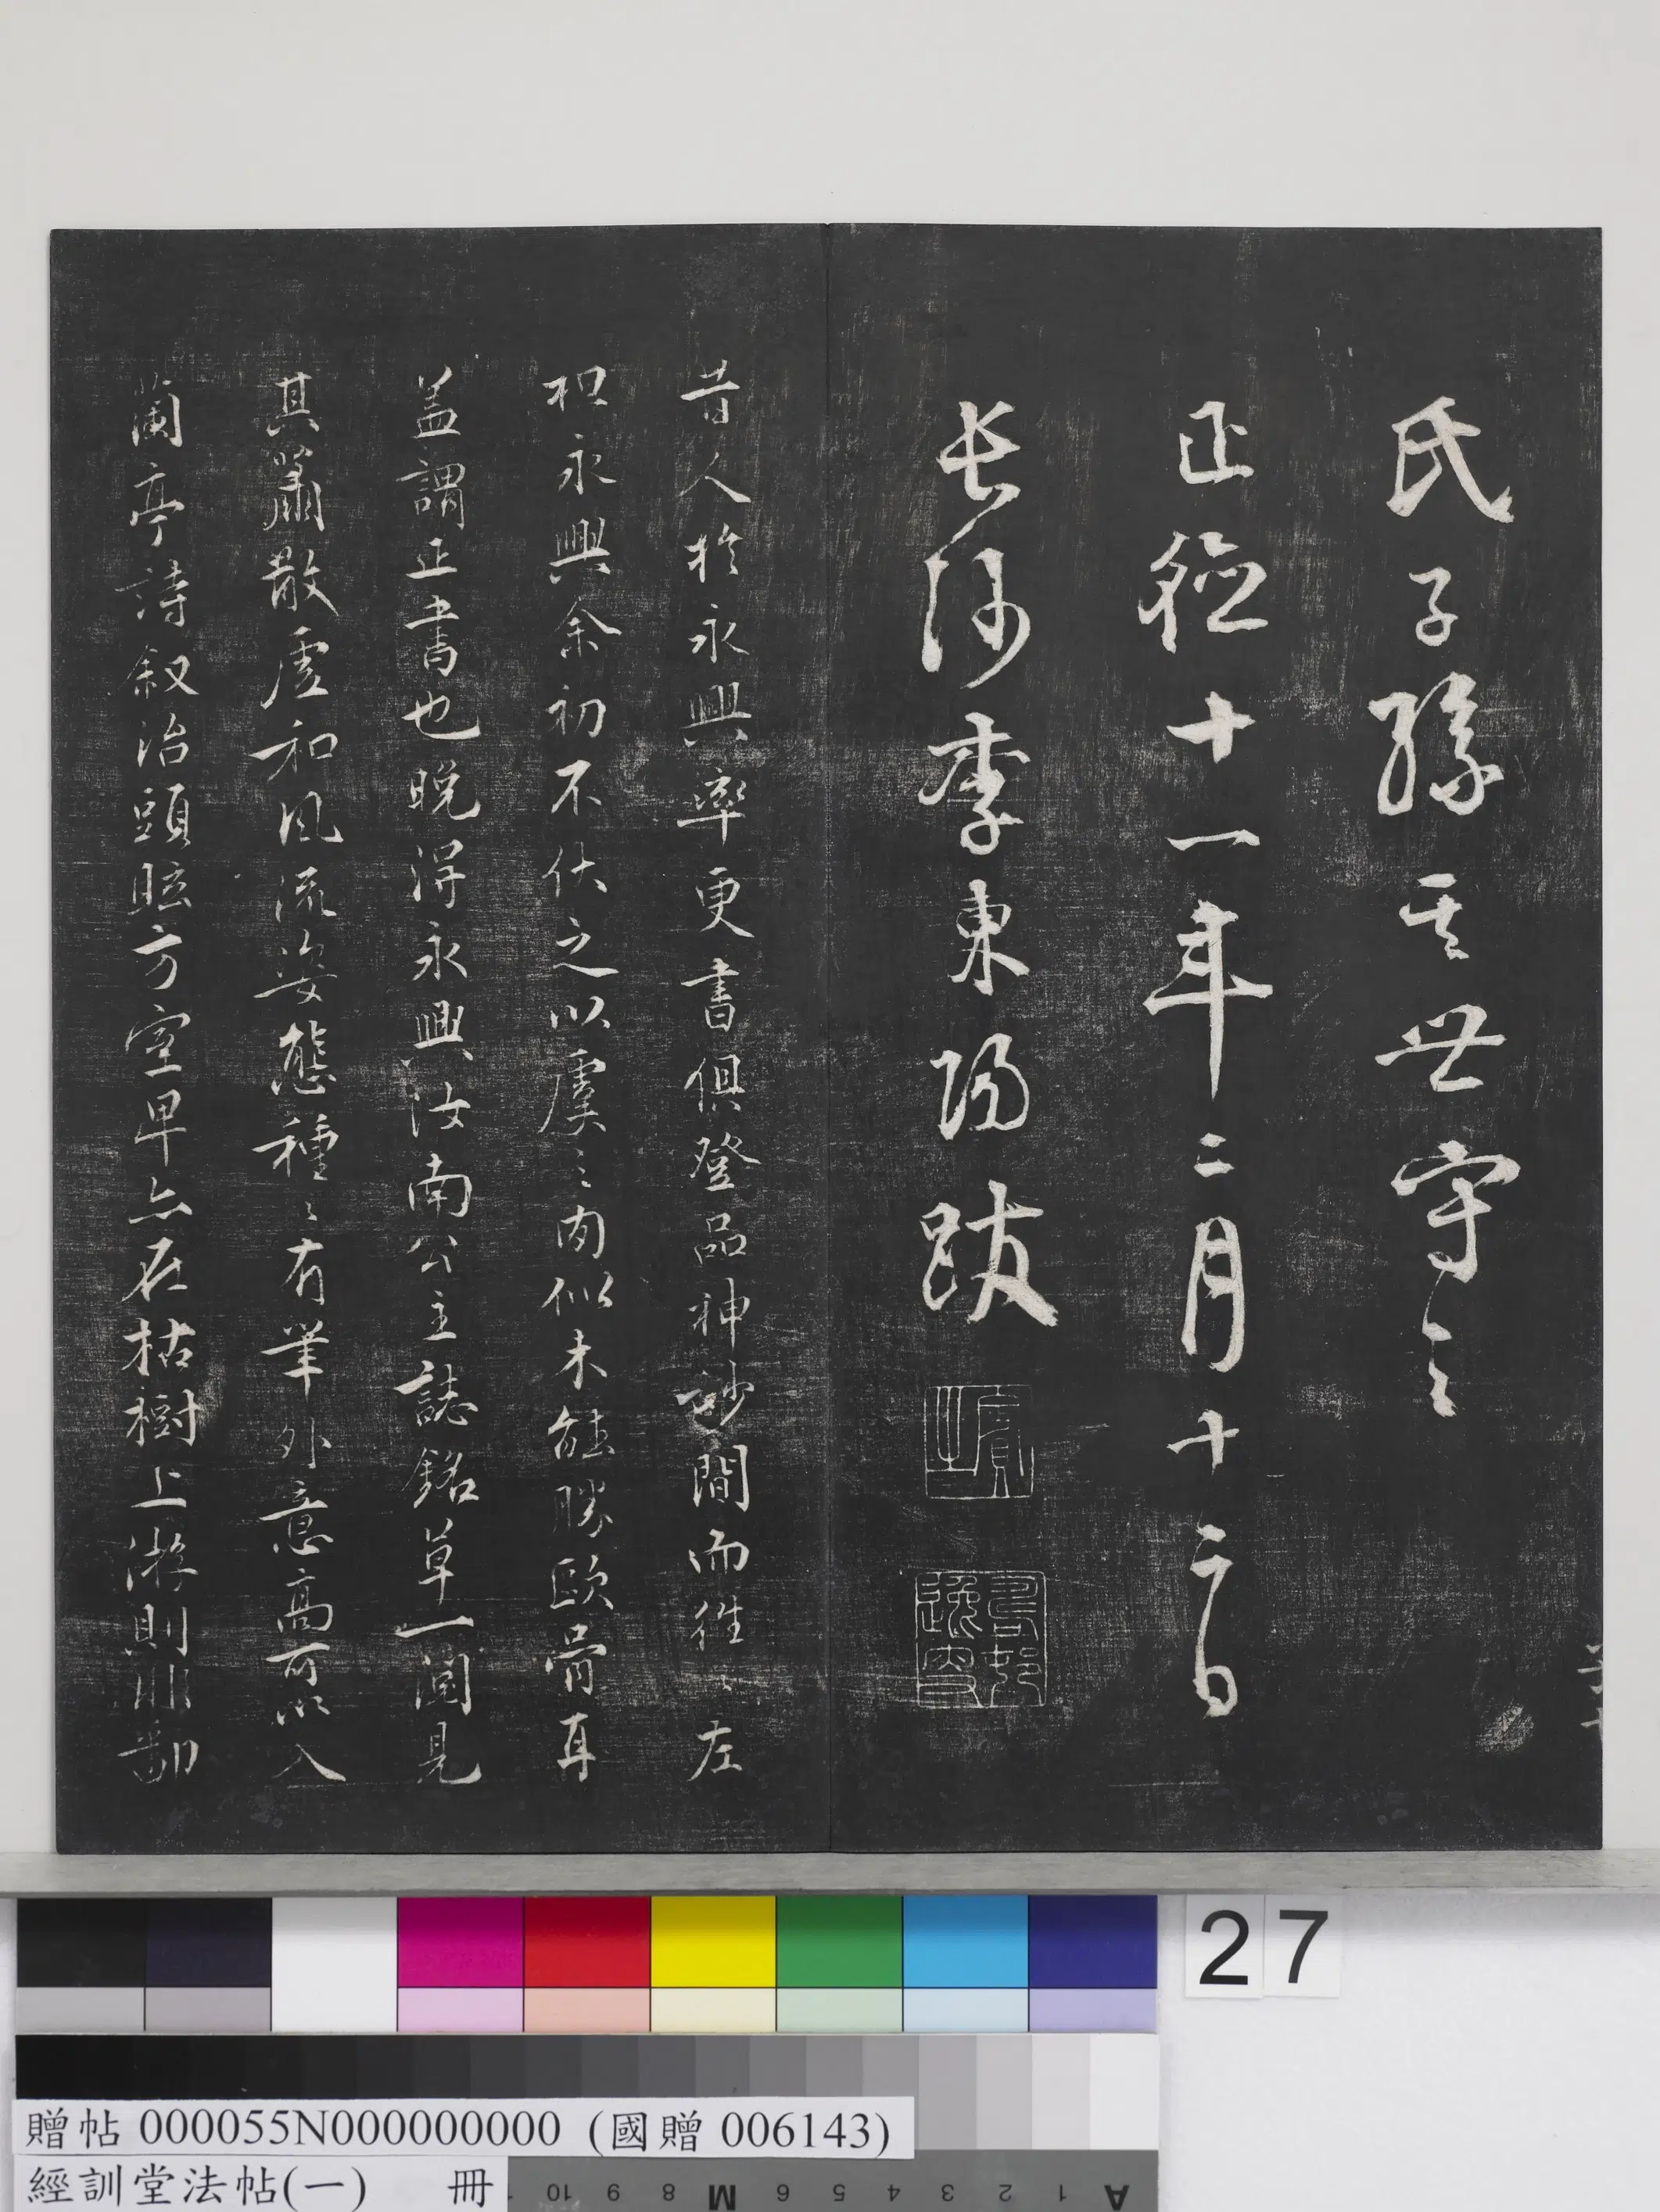 氏子孫其世守之
正德十一年二月十二日
長沙李東陽跋
賓之
昔人於永興率更書俱登品神妙間而往〻左
袒永興余初不伏之以虞〻肉似未能勝歐骨耳
蓋謂正書也晚得永興汝南公主誌銘草一閱見
其蕭散虛和風流姿態種〻有筆外意高可以入
蘭亭詩叙治頭眩方室卑亦在枯樹上游則非鄙
27
贈帖 000055N000000000 (國贈 006143)
經訓堂法帖(一) 冊
A 1 2 3 4 5 6 M 8 9 10